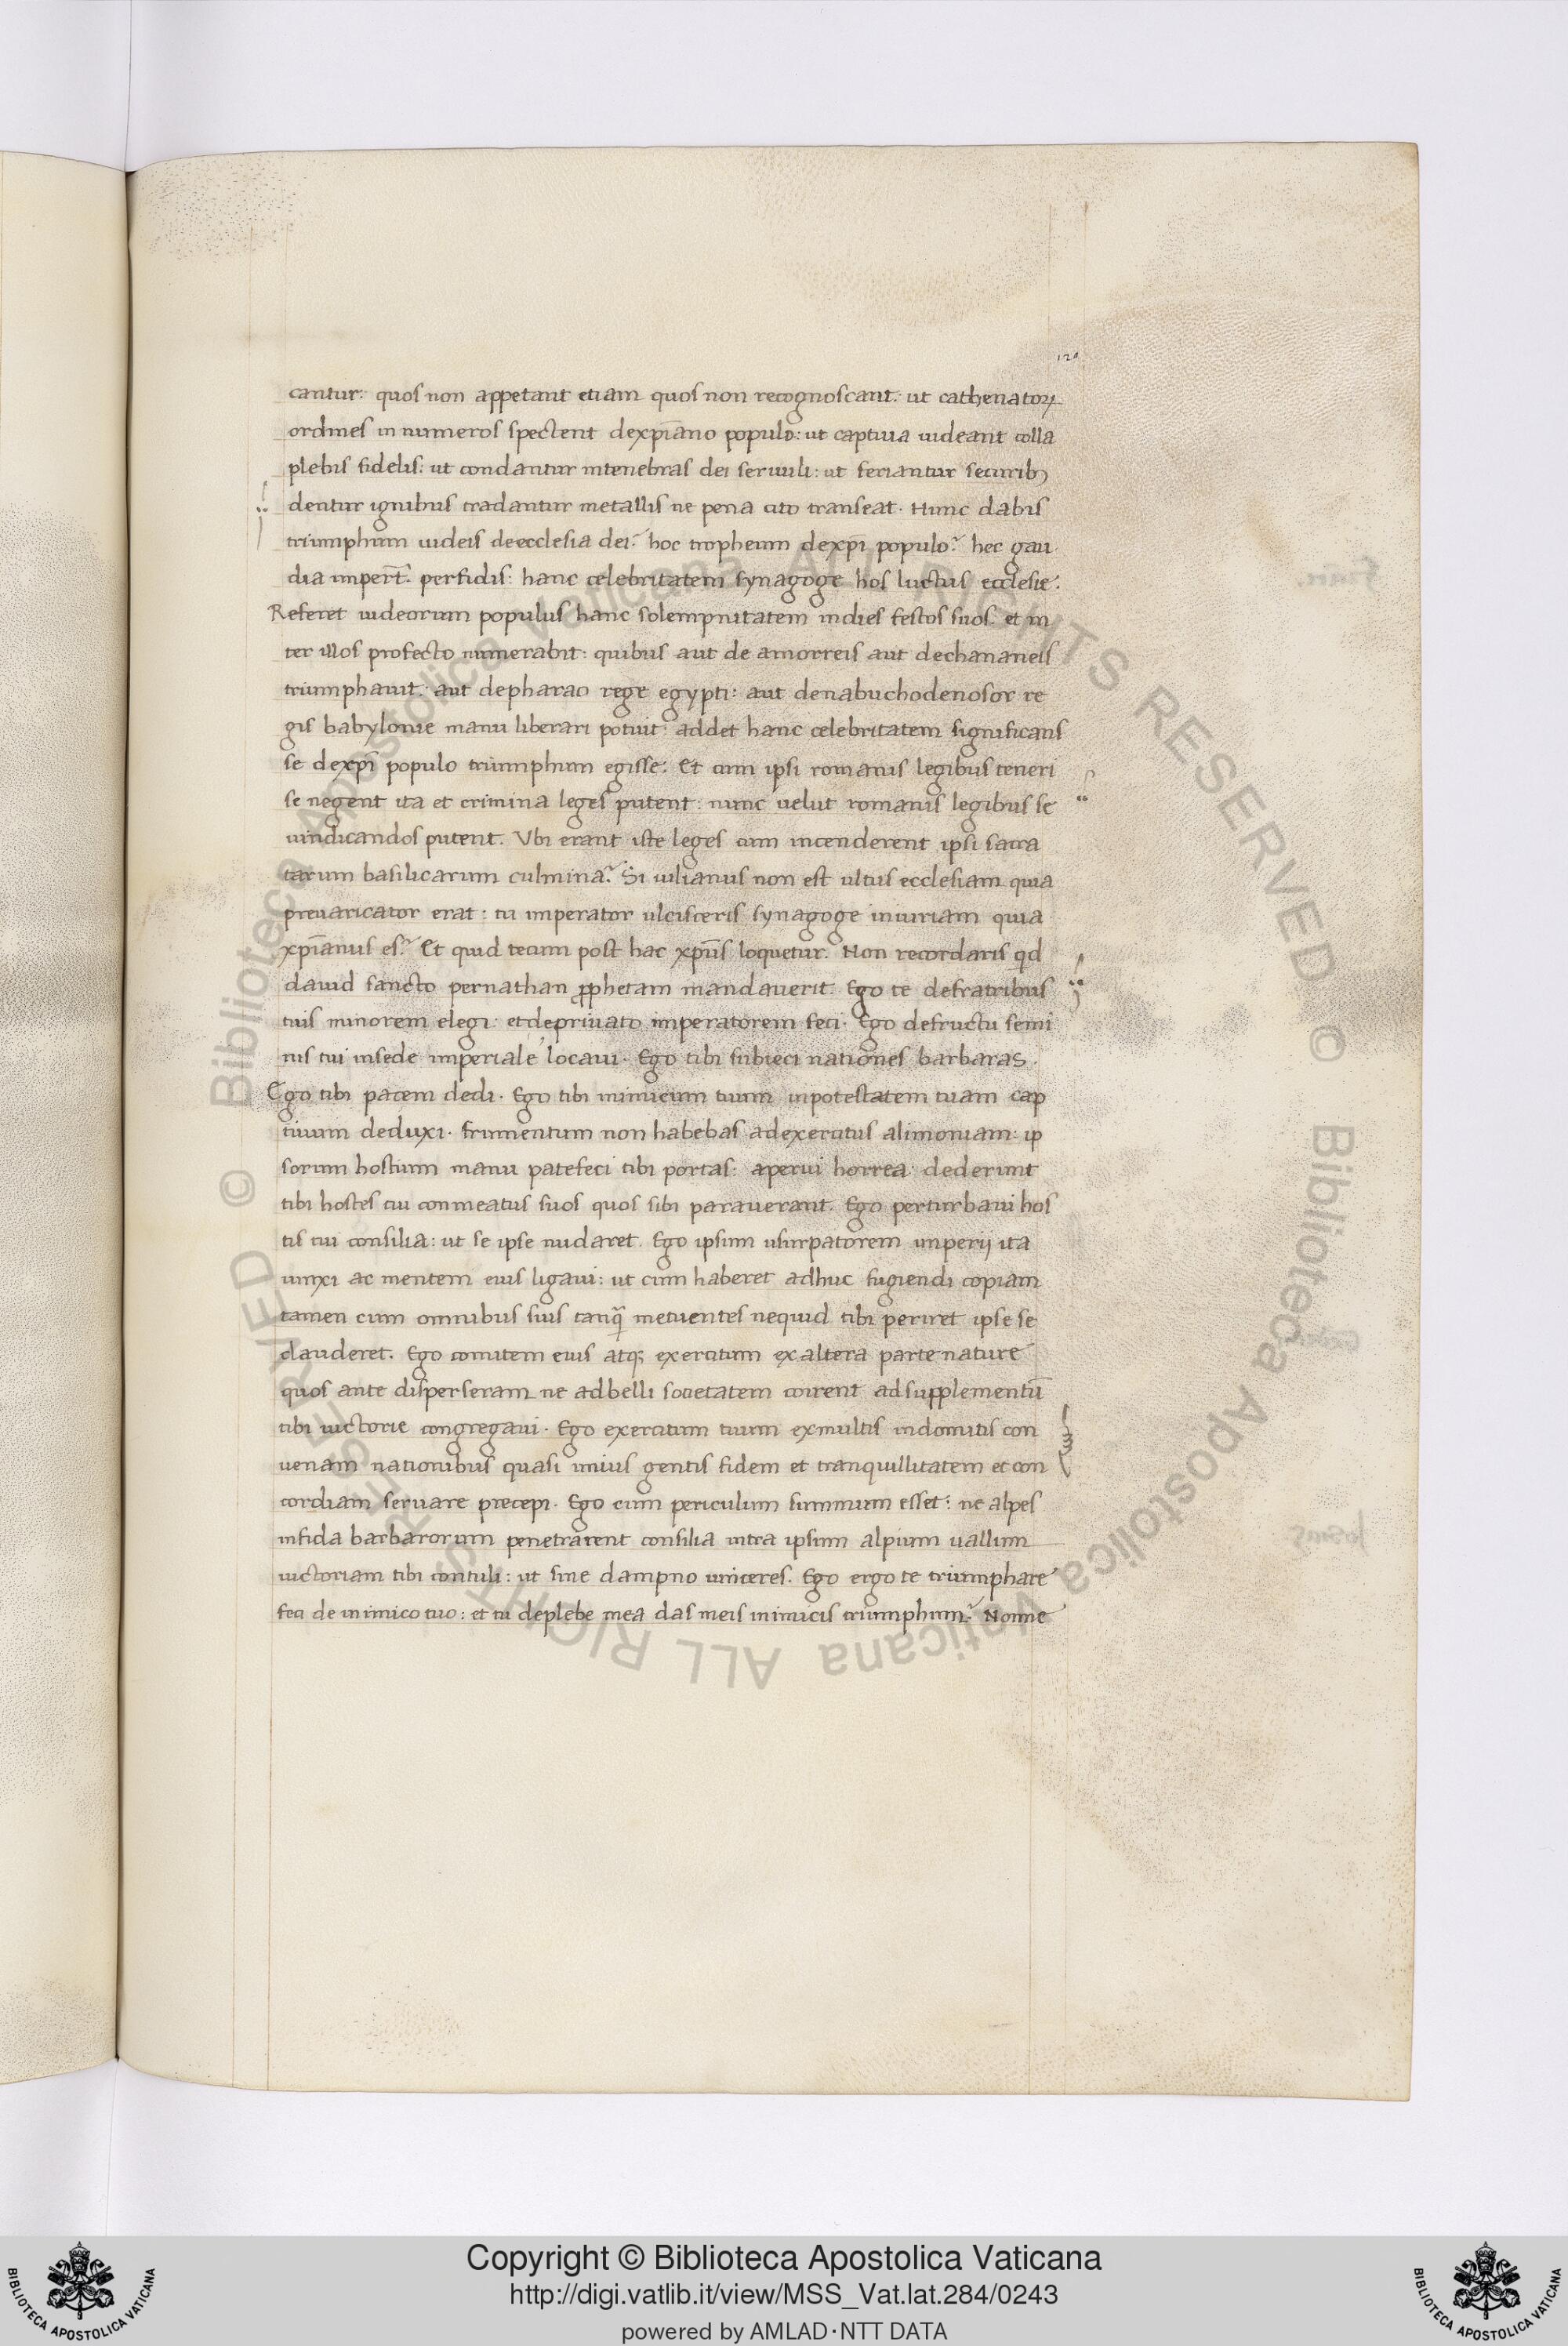 120
cantur: quos non appetant etiam quos non recognoscant: ut cathenatoꝝ
ordines in numeros spectent dexp̄iano populo: ut captiua uideant colla
plebis fidelis: ut condantur intenebras dei seruuli: ut feriantur securibꝫ
dentur ignibus tradantur metallis ne pena cito transeat. Hunc dabis
triumphum iudeis deecclesia dei? hoc tropheum dexp̄i populo? hec gau
dia impert̄. perfidis: hanc celebritatem synagoge hos luctus ecclesie?
Referet iudeorum populus hanc solempnitatem indies festos suos: et in
ter illos profecto numerabit: quibus aut de amorreis aut dechananeis
triumphauit: aut depharao rege egypti: aut denabuchodenosor re
gis babylonie manu liberari potuit: addet hanc celebritatem significans
se dexp̄i populo triumphum egisse: Et cum ipsi romanis legibus teneri
se negent ita et crimina leges putent: nunc uelut romanis legibus se
uindicandos putent. Vbi erant iste leges cum incenderent ipsi sacra
tarum basilicarum culmina? Si iulianus non est ultus ecclesiam quia
preuaricator erat: tu imperator ulcisceris synagoge iniuriam quia
xp̄ianus es? Et quid tecum post hac xp̄us loquetur? Non recordaris qd
dauid sancto pernathan ꝓphetam mandauerit. Ego te defratribus
tuis minorem elegi: et depriuato imperatorem feci. Ego defructu semi
nis tui insede imperiale locaui. Ego tibi subieci nationes barbaras.
Ego tibi pacem dedi. Ego tibi inimicum tuum inpotestatem tuam cap
tiuum deduxi. frumentum non habebas adexercitus alimoniam: ip
sorum hostium manu patefeci tibi portas: aperui horrea: dederunt
tibi hostes tui conmeatus suos quos sibi parauerant. Ego perturbaui hos
tis tui consilia: ut se ipse nudaret. Ego ipsum usurpatorem imperij ita
uinxi ac mentem eius ligaui: ut cum haberet adhuc fugiendi copiam
tamen cum omnibus suis tanq̄ metuentes nequid tibi periret ipse se
clauderet. Ego comitem eius atq; exercitum exaltera parte nature
quos ante disperseram ne adbelli societatem coirent adsupplementū
tibi uictorie congregaui. Ego exercitum tuum exmultis indomitis con
uenam nationibus quasi unius gentis fidem et tranquillitatem et con
cordiam seruare precepi. Ego cum periculum summum esset: ne alpes
infida barbarorum penetrarent consilia intra ipsum alpium uallum
uictoriam tibi contuli: ut sine dampno uinceres. Ego ergo te triumphare
feci de inimico tuo: et tu deplebe mea das meis inimicis triumphum? Nonne
© Biblioteca Apostolica Vaticana ALL RIGHTS RESERVED © Biblioteca Apostolica Vaticana ALL RIGHTS RESERVED
Copyright © Biblioteca Apostolica Vaticana
http://digi.vatlib.it/view/MSS_Vat.lat.284/0243
powered by AMLAD·NTT DATA
BIBLIOTECA APOSTOLICA VATICANA
BIBLIOTECA APOSTOLICA VATICANA